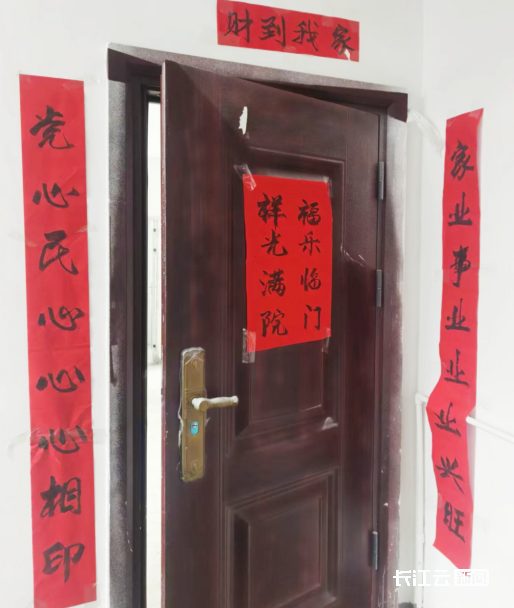 财到我家
家业事业业业兴旺
福乐临门
祥光满院
党心民心心心相印
长江云